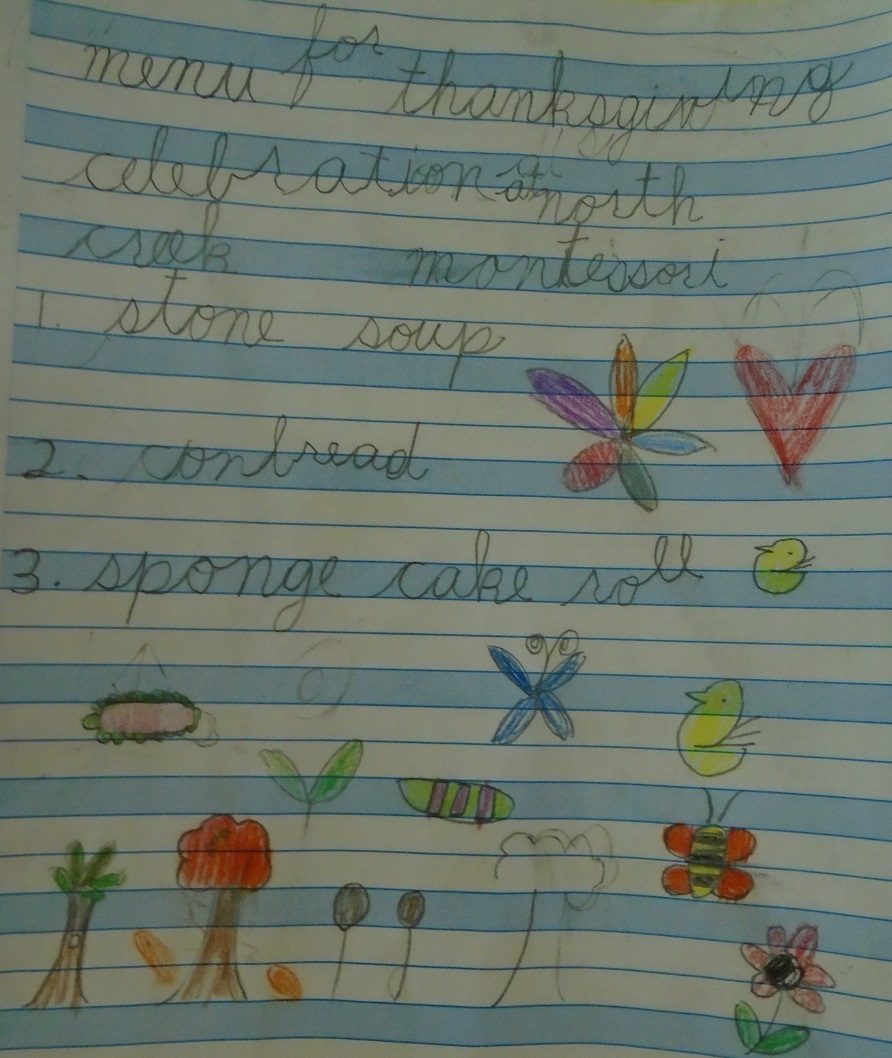 menu for thanksgiving
celebration at north
creek montessori
1. stone soup
2. conbread
3. sponge cake roll